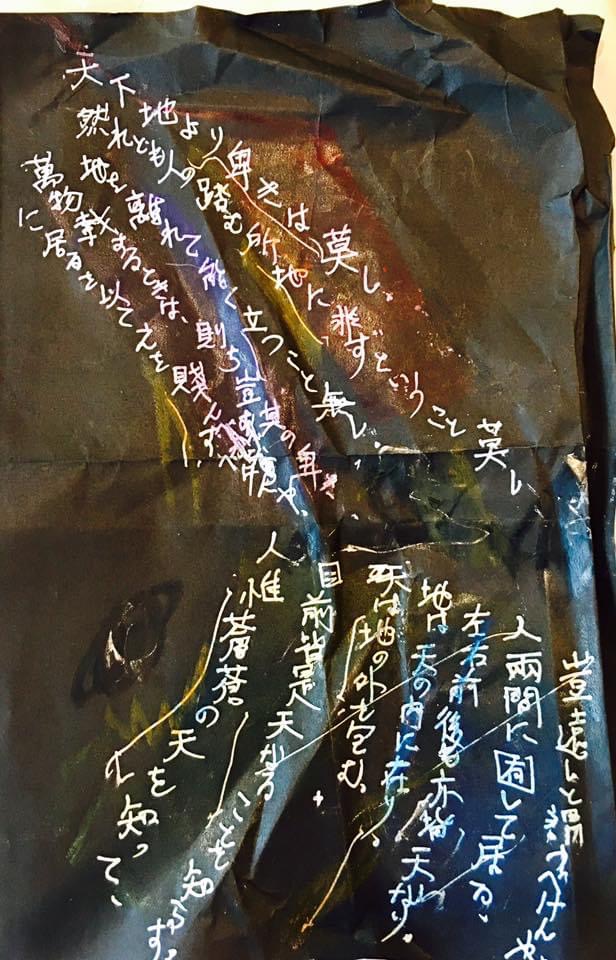 天下地より卑きは莫し。
然れども人の踏む所地に非ずということ莫し
地を離れて能く立つこと無し.
萬物載するときは、則ち豈其の卑き
に居るを以てえを賤んずべ
人惟蒼蒼の天を知って、
目前皆是天なることを知らず。
天は地の外を包む。
地は天の内に在り。
左右前後も亦皆天なり。
人兩間に囿して居る、
豈遠しと謂